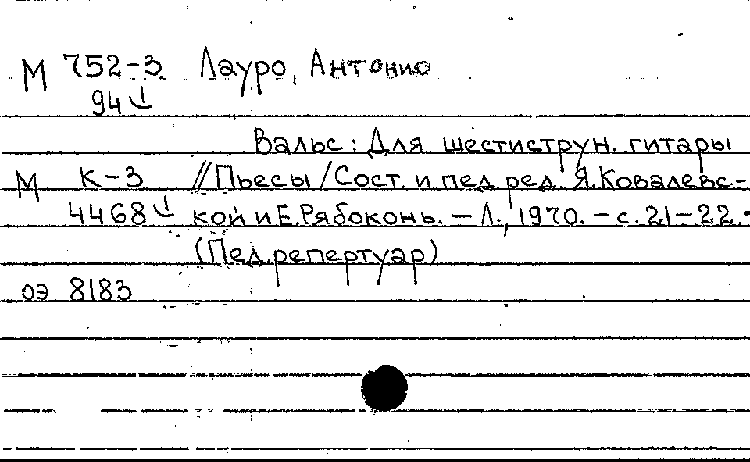 М 752-3 Лауро, Антонио
94↓
Вальс: Для шестиструн. гитары
М К-3 //Пьесы/Сост. и пед. ред. Я.Ковалевс-
4468↓ кой и Е.Рябоконь. – Л., 1970. – с. 21–22. –
(Пед.репертуар)
оэ 8183